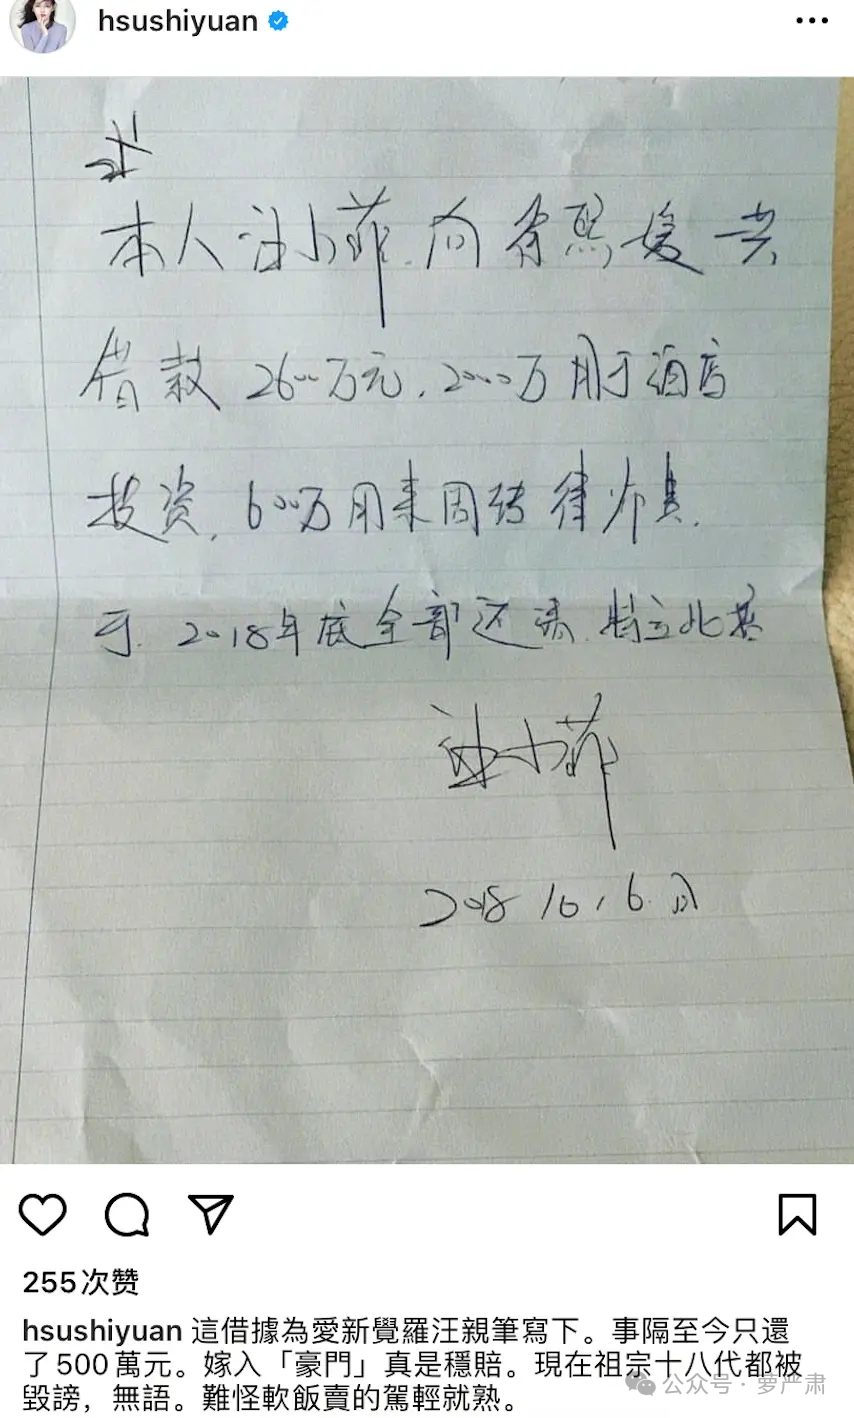 hsushiyuan
本人汪小菲.向徐熙媛共
借款2600万元.2000万用于酒店
投资,600万用来周转律师费.
于.2018年底全部还清.特立此据
汪小菲
2018 10, 6.日
255次赞
hsushiyuan 這借據為愛新覺羅汪親筆寫下。事隔至今只還
了500萬元。嫁入「豪門」真是穩賠。現在祖宗十八代都被
毀謗，無語。難怪軟飯賣的駕輕就熟。
公众号·萝严肃